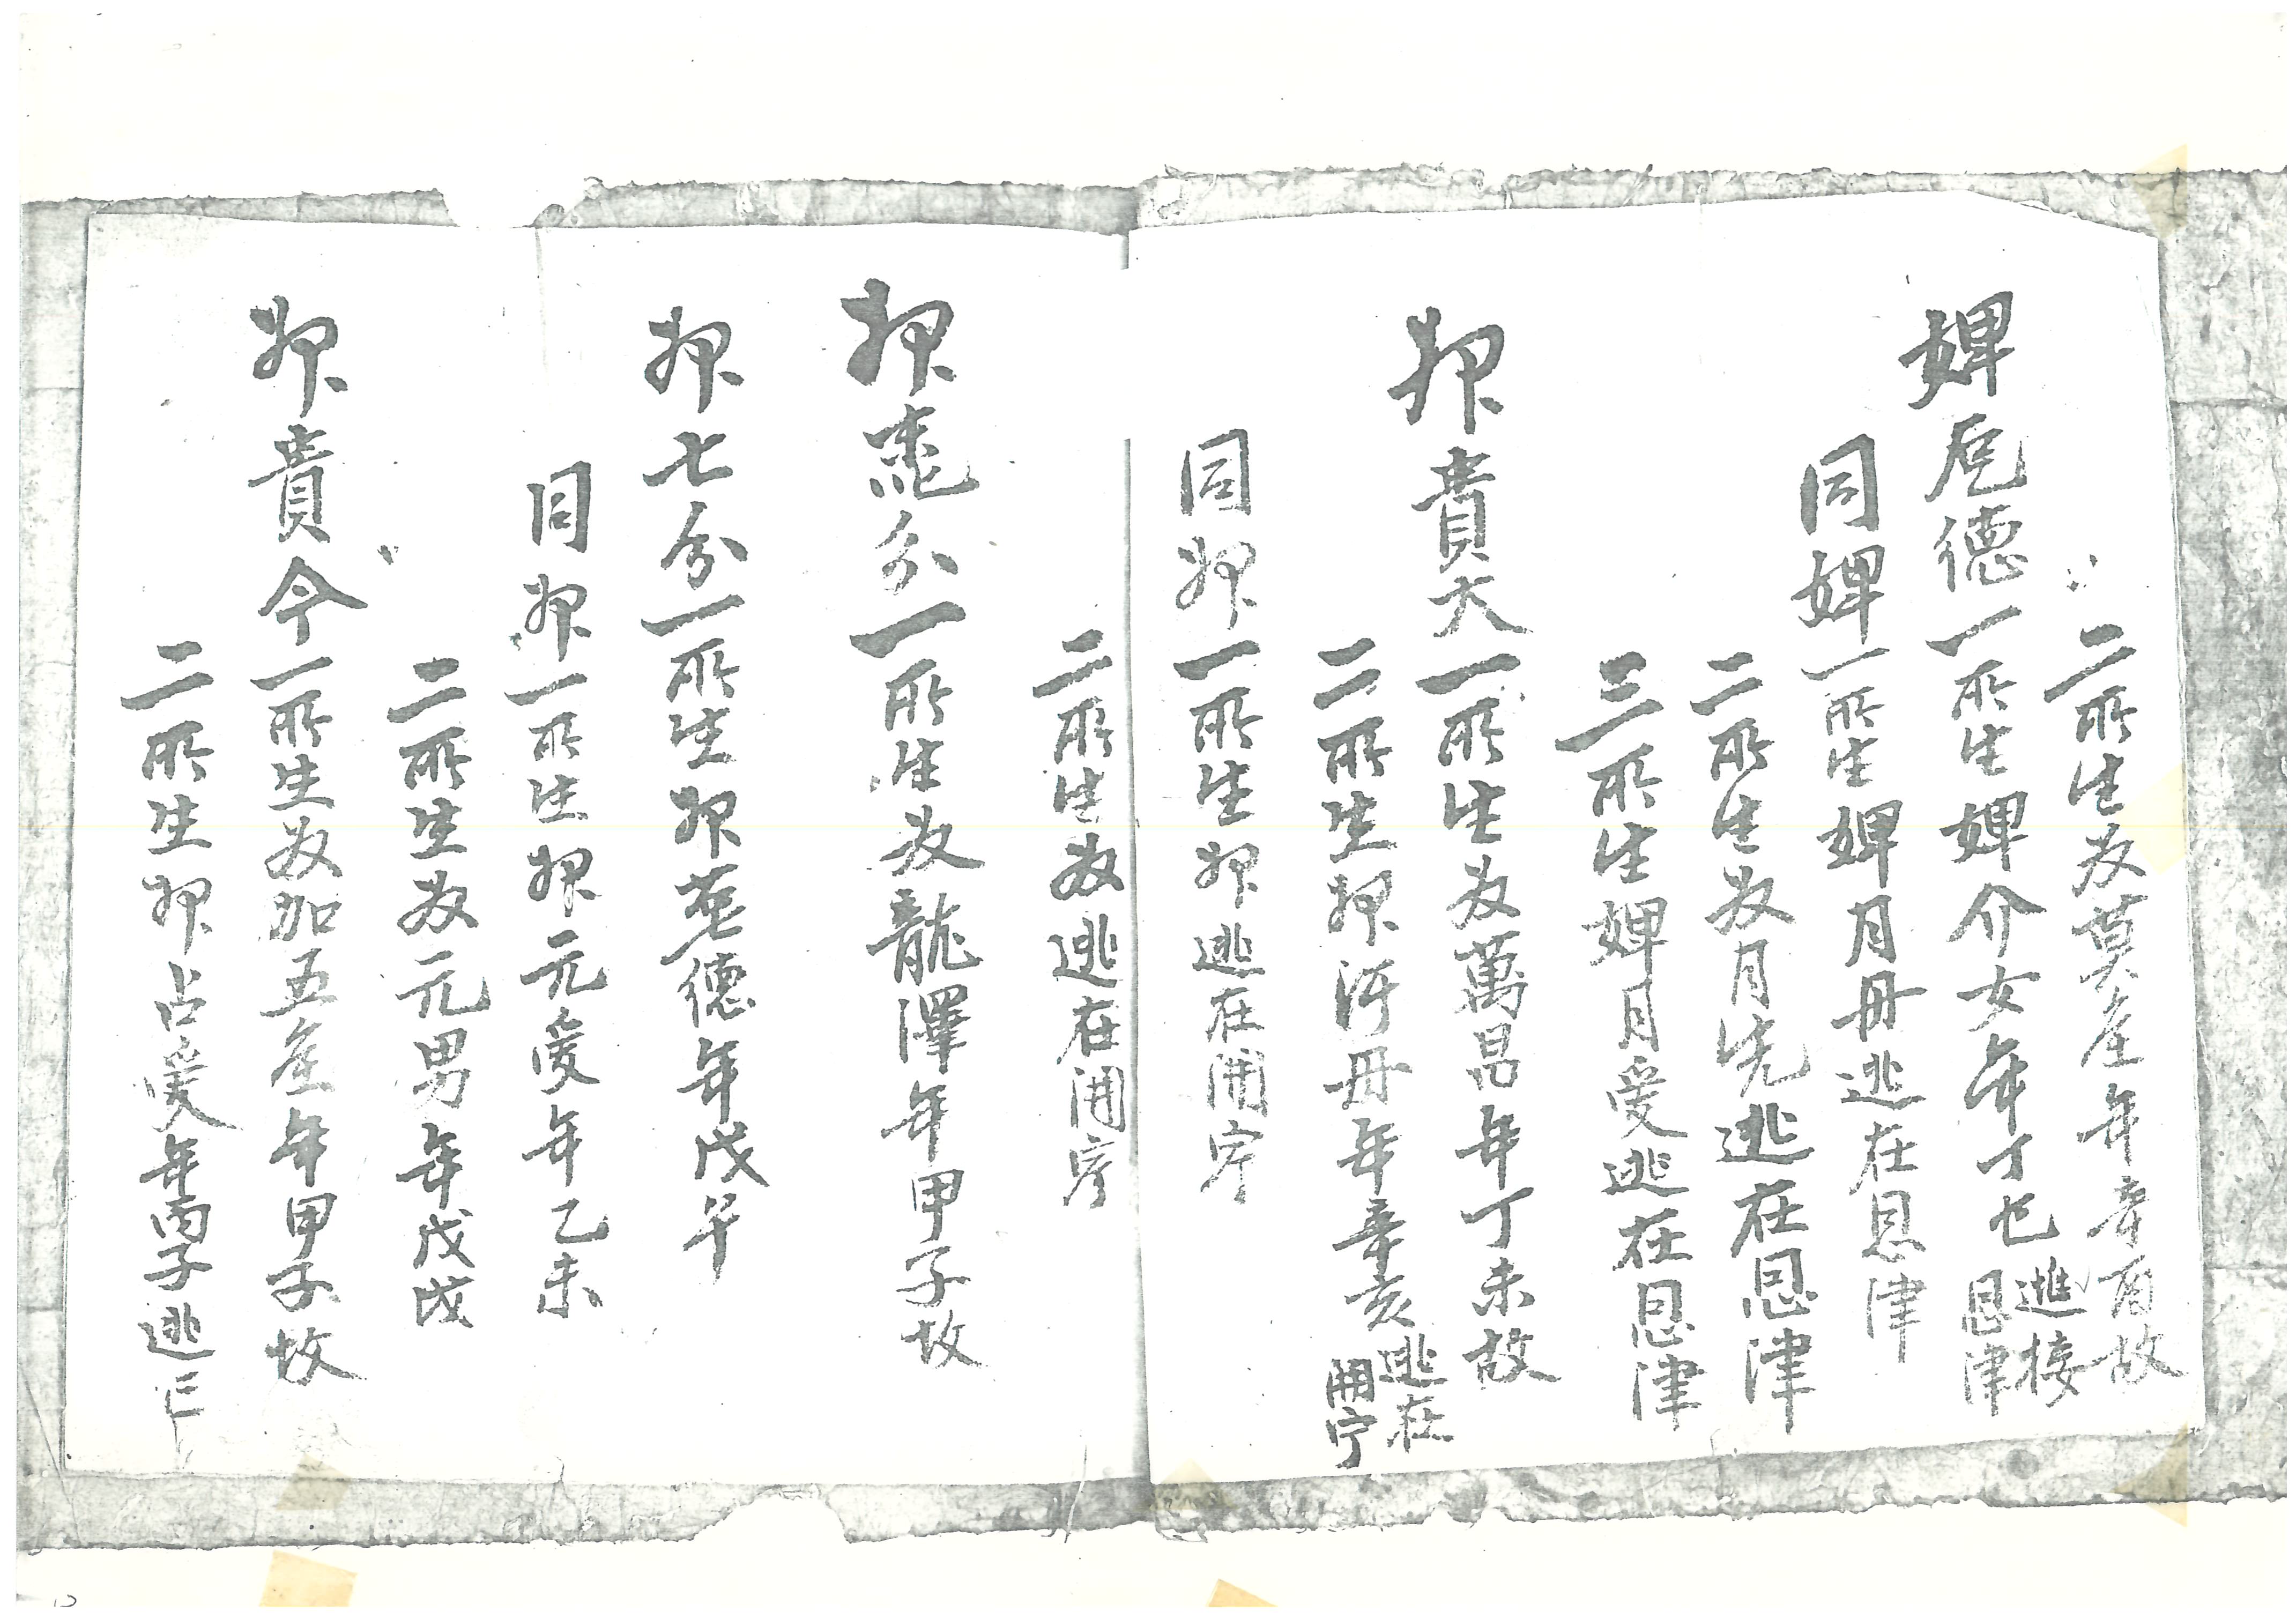 二所生奴莫産年辛酉故
婢卮德一所生婢介女年丁巳逃接恩津
同婢一所生婢月丹逃在恩津
二所生奴月先逃在恩津
三所生婢月愛逃在恩津
婢貴大一所生奴萬昌年丁未故
二所生婢丹年辛亥逃在開宁
同婢一所生婢逃在開宁
二所生奴逃在開宁
婢分一所生奴龍澤年甲子故
婢七分一所生婢德年戊午
同婢一所生婢元愛年乙未
二所生奴元男年戊戌
婢貴今一所生奴加五産年甲子故
二所生婢占愛年丙子逃亡